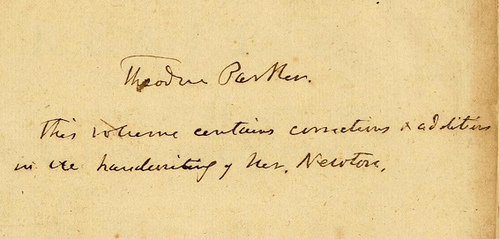 Theodore Parker.
This volume contains corrections & additions
in the handwriting of Mr. Newton.